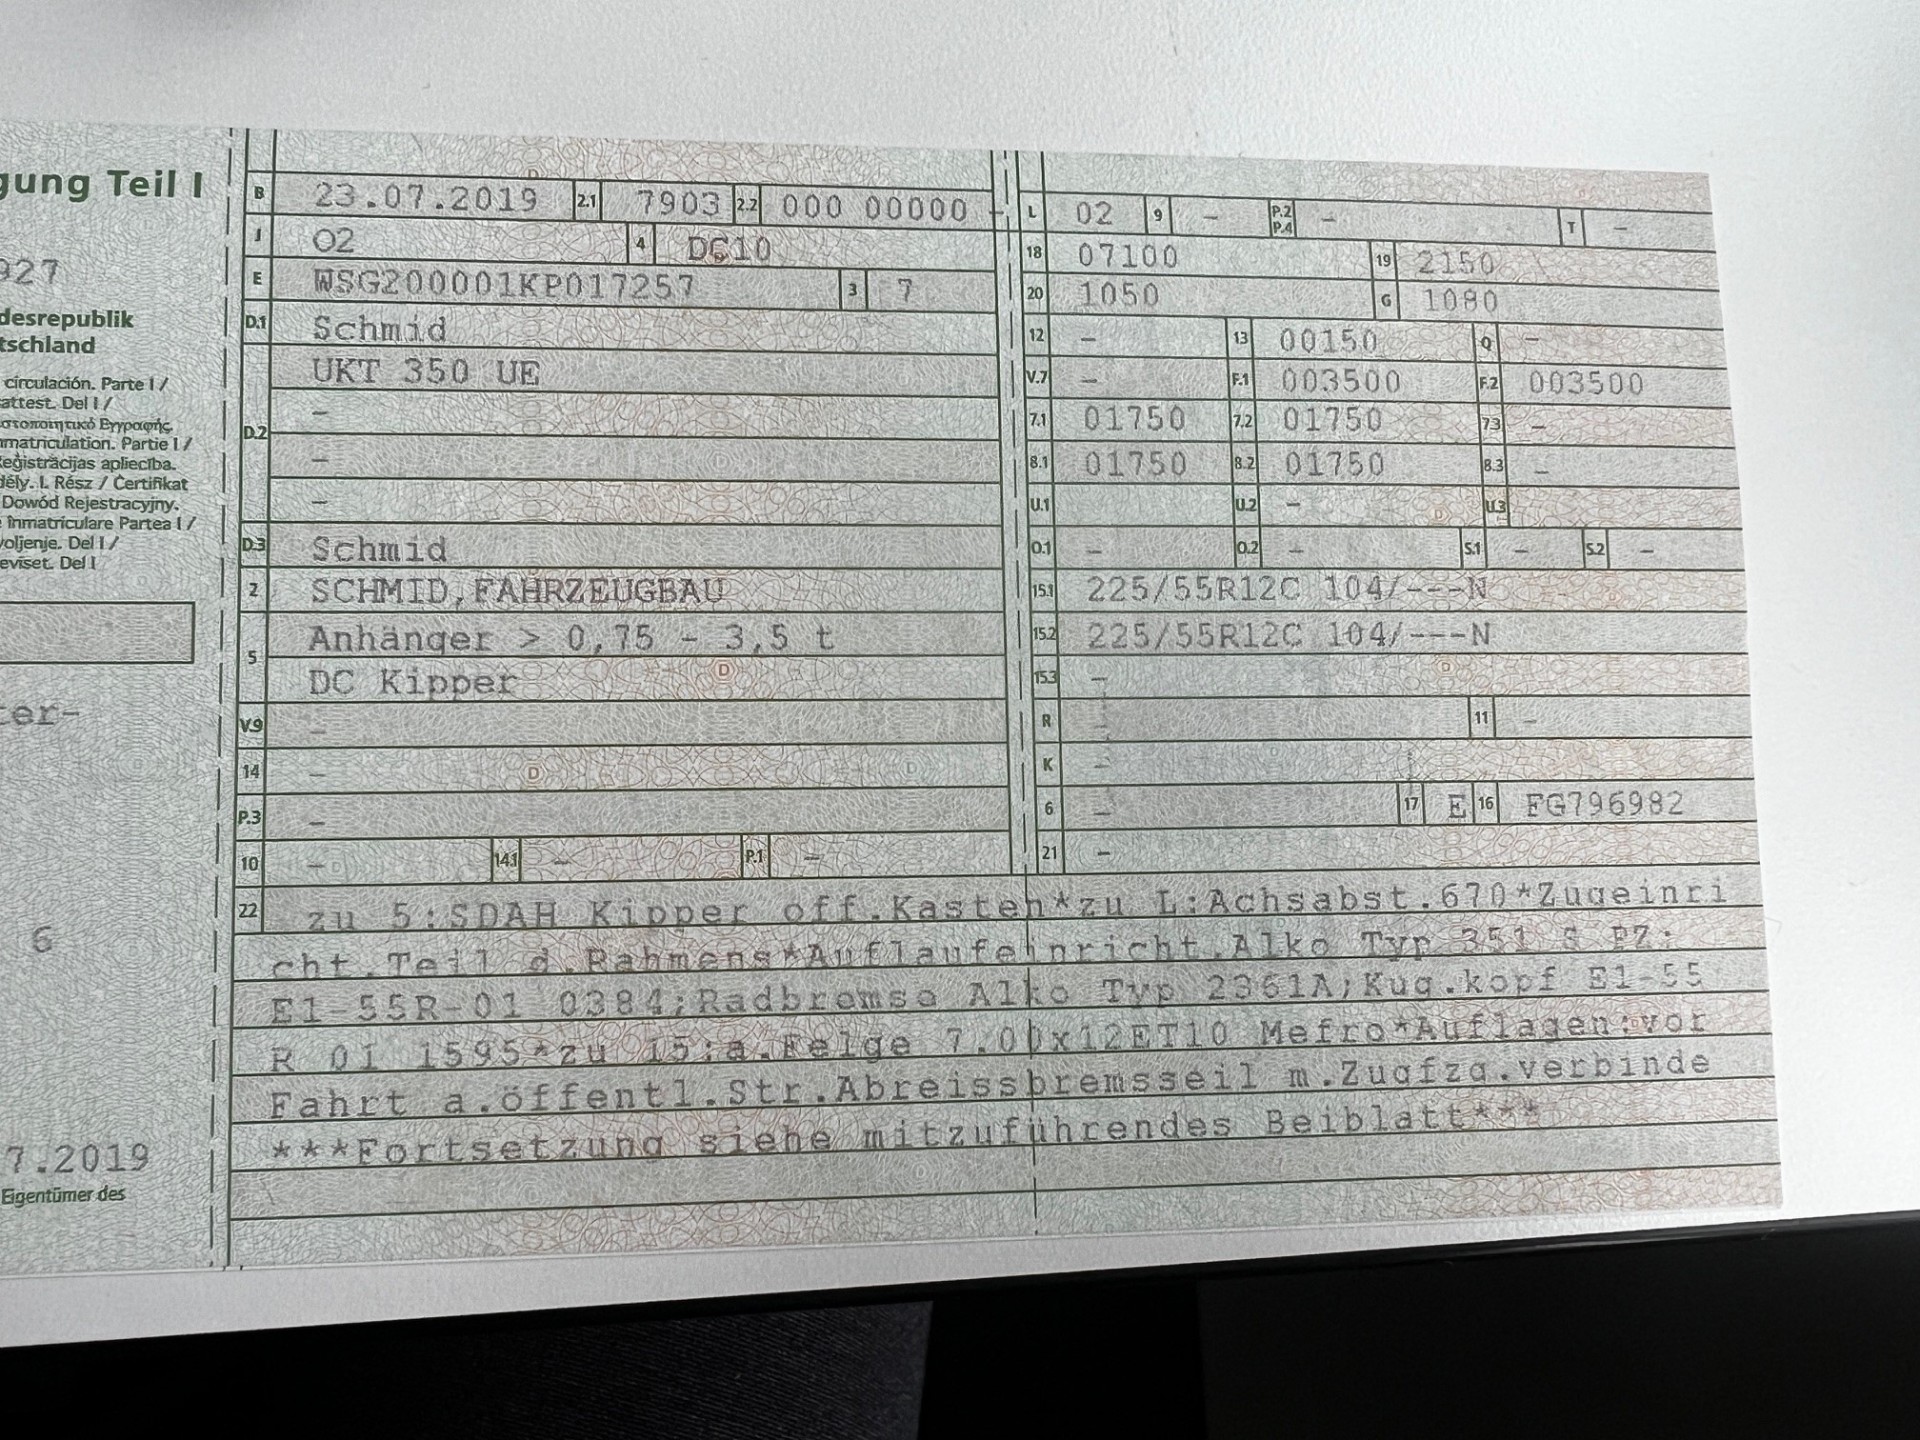 gung Teil I
927
desrepublik
tschland
circulación. Parte I /
attest. Del I /
στοποιητικό Εγγραφής
mmatriculation. Partie I /
Reģistrācijas apliecība.
dély. I. Rész / Certifikat
Dowód Rejestracyjny.
înmatriculare Partea I /
voljenje. Del I /
eviset. Del I
ter-
6
7.2019
Eigentümer des
B 23.07.2019 2.1 7903 2.2 000 00000
J O2 4 DC10
E WSG200001KP017257 3 7
D.1 Schmid
UKT 350 UE
–
D.2
–
–
D.3 Schmid
2 SCHMID,FAHRZEUGBAU
Anhänger > 0,75 - 3,5 t
5
DC Kipper
V.9 –
14 –
P.3 –
10 – 14.1 – P.1 –
L 02 9 – P.2 P.4 – T –
18 07100 19 2150
20 1050 G 1080
12 – 13 00150 Q –
V.7 – F.1 003500 F.2 003500
7.1 01750 7.2 01750 7.3 –
8.1 01750 8.2 01750 8.3 –
U.1 U.2 – U.3
O.1 – O.2 – S.1 – S.2 –
15.1 225/55R12C 104/---N
15.2 225/55R12C 104/---N
15.3 –
R – 11 –
K –
6 – 17 E 16 FG796982
21 –
22 zu 5:SDAH Kipper off.Kasten*zu L:Achsabst.670*Zugeinri
cht.Teil d.Rahmens*Auflaufeinricht.Alko Typ 351 S PZ:
E1-55R-01 0384;Radbremse Alko Typ 2361A;Kug.kopf E1-55
R 01 1595*zu 15:a.Felge 7.00x12ET10 Mefro*Auflagen:vor
Fahrt a.öffentl.Str.Abreissbremsseil m.Zugfzg.verbinde
***Fortsetzung siehe mitzuführendes Beiblatt***